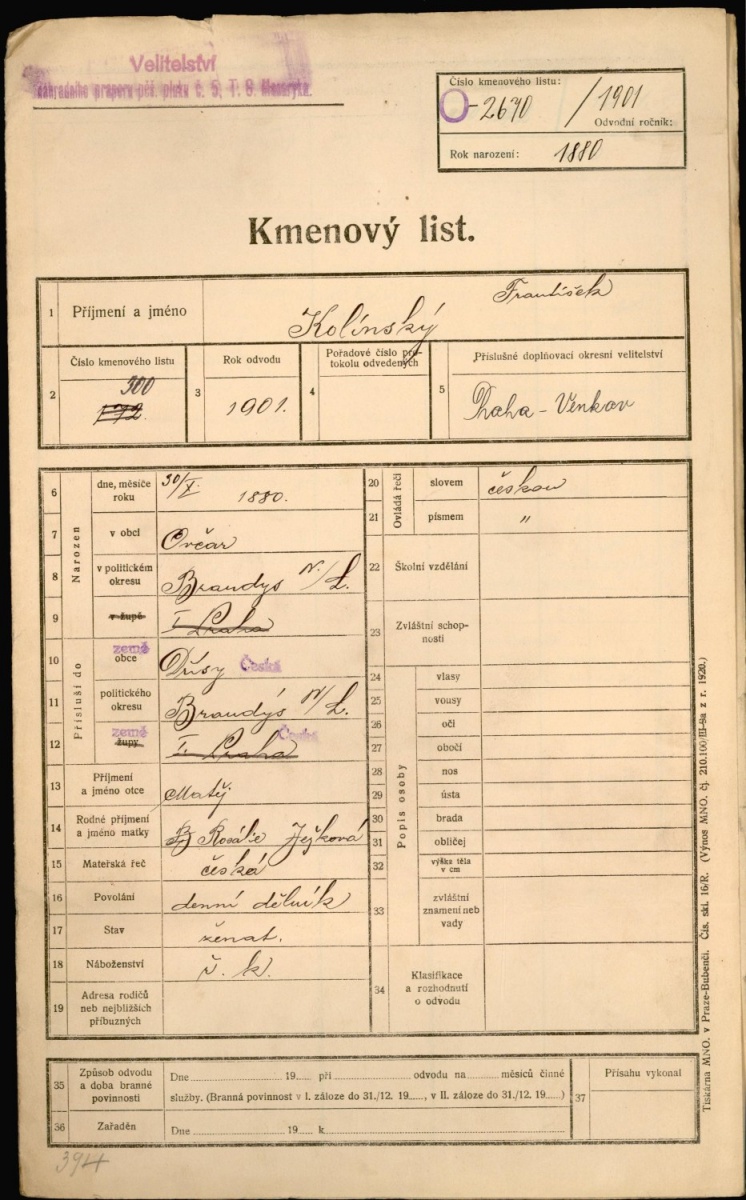 Velitelství
náhradního praporu pěš. pluku č. 5, T. G. Masaryka.
Číslo kmenového listu:
O-2670 /1901
Odvodní ročník:
Rok narození: 1880
Kmenový list.
1 Příjmení a jméno Kolínský František
2 Číslo kmenového listu 172. 300
3 Rok odvodu 1901.
4 Pořadové číslo protokolu odvedených
5 Příslušné doplňovací okresní velitelství Praha - Venkov
Narozen
6 dne, měsíce roku 30/X. 1880.
7 v obci Ovčar
8 v politickém okresu Brandys n/L.
9 v župě I Praha
Přísluší do
10 země obce Dřísy Česká
11 politického okresu Brandýs n/L.
12 země župy I. Praha Česká
13 Příjmení a jméno otce Matěj
14 Rodné příjmení a jméno matky Rosálie Ježková
15 Mateřská řeč česká
16 Povolání denní dělník
17 Stav ženat.
18 Náboženství ř. k.
19 Adresa rodičů neb nejbližších příbuzných
Ovládá řeči
20 slovem českou
21 písmem "
22 Školní vzdělání
23 Zvláštní schopnosti
Popis osoby
24 vlasy
25 vousy
26 oči
27 obočí
28 nos
29 ústa
30 brada
31 obličej
32 výška těla v cm
33 zvláštní znamení neb vady
34 Klasifikace a rozhodnutí o odvodu
35 Způsob odvodu a doba branné povinnosti
Dne 19 při odvodu na měsíců činné
služby. (Branná povinnost v I. záloze do 31./12. 19, v II. záloze do 31./12. 19)
36 Zařaděn Dne 19 k
37 Přísahu vykonal
Tiskárna MNO. v Praze-Bubenči. Čís. skl. 16/R. (Výnos MNO. čj. 210.100/III-9a z r. 1920.)
394